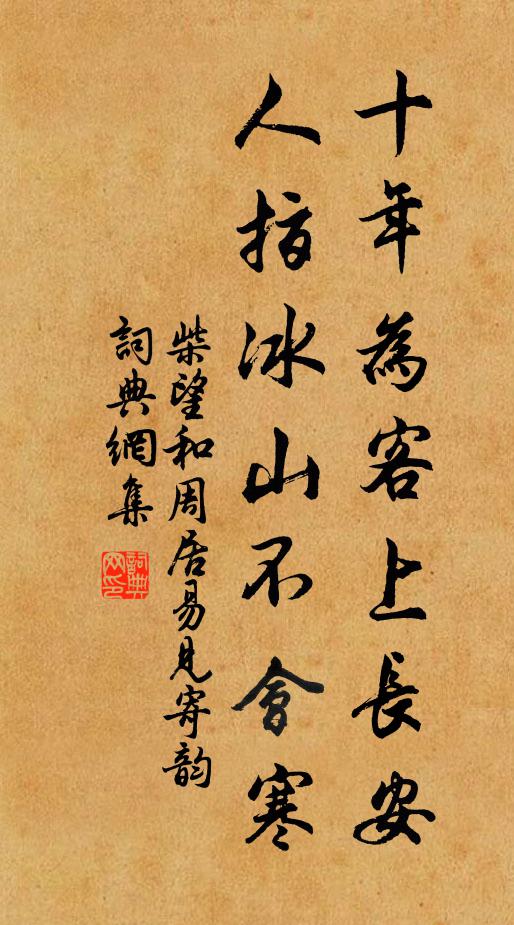 十年為客上長安
人指冰山不會寒
柴望和周居易見寄韵
詞典網集
詞典網印